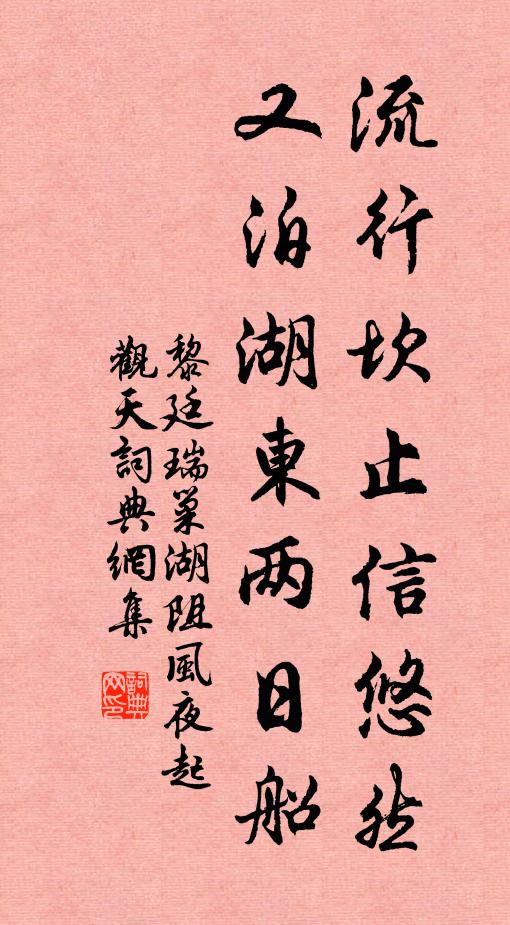 流行坎止信悠然
又泊湖東两日船
黎廷瑞巢湖阻風夜起
觀天詞典網集
詞典
网印